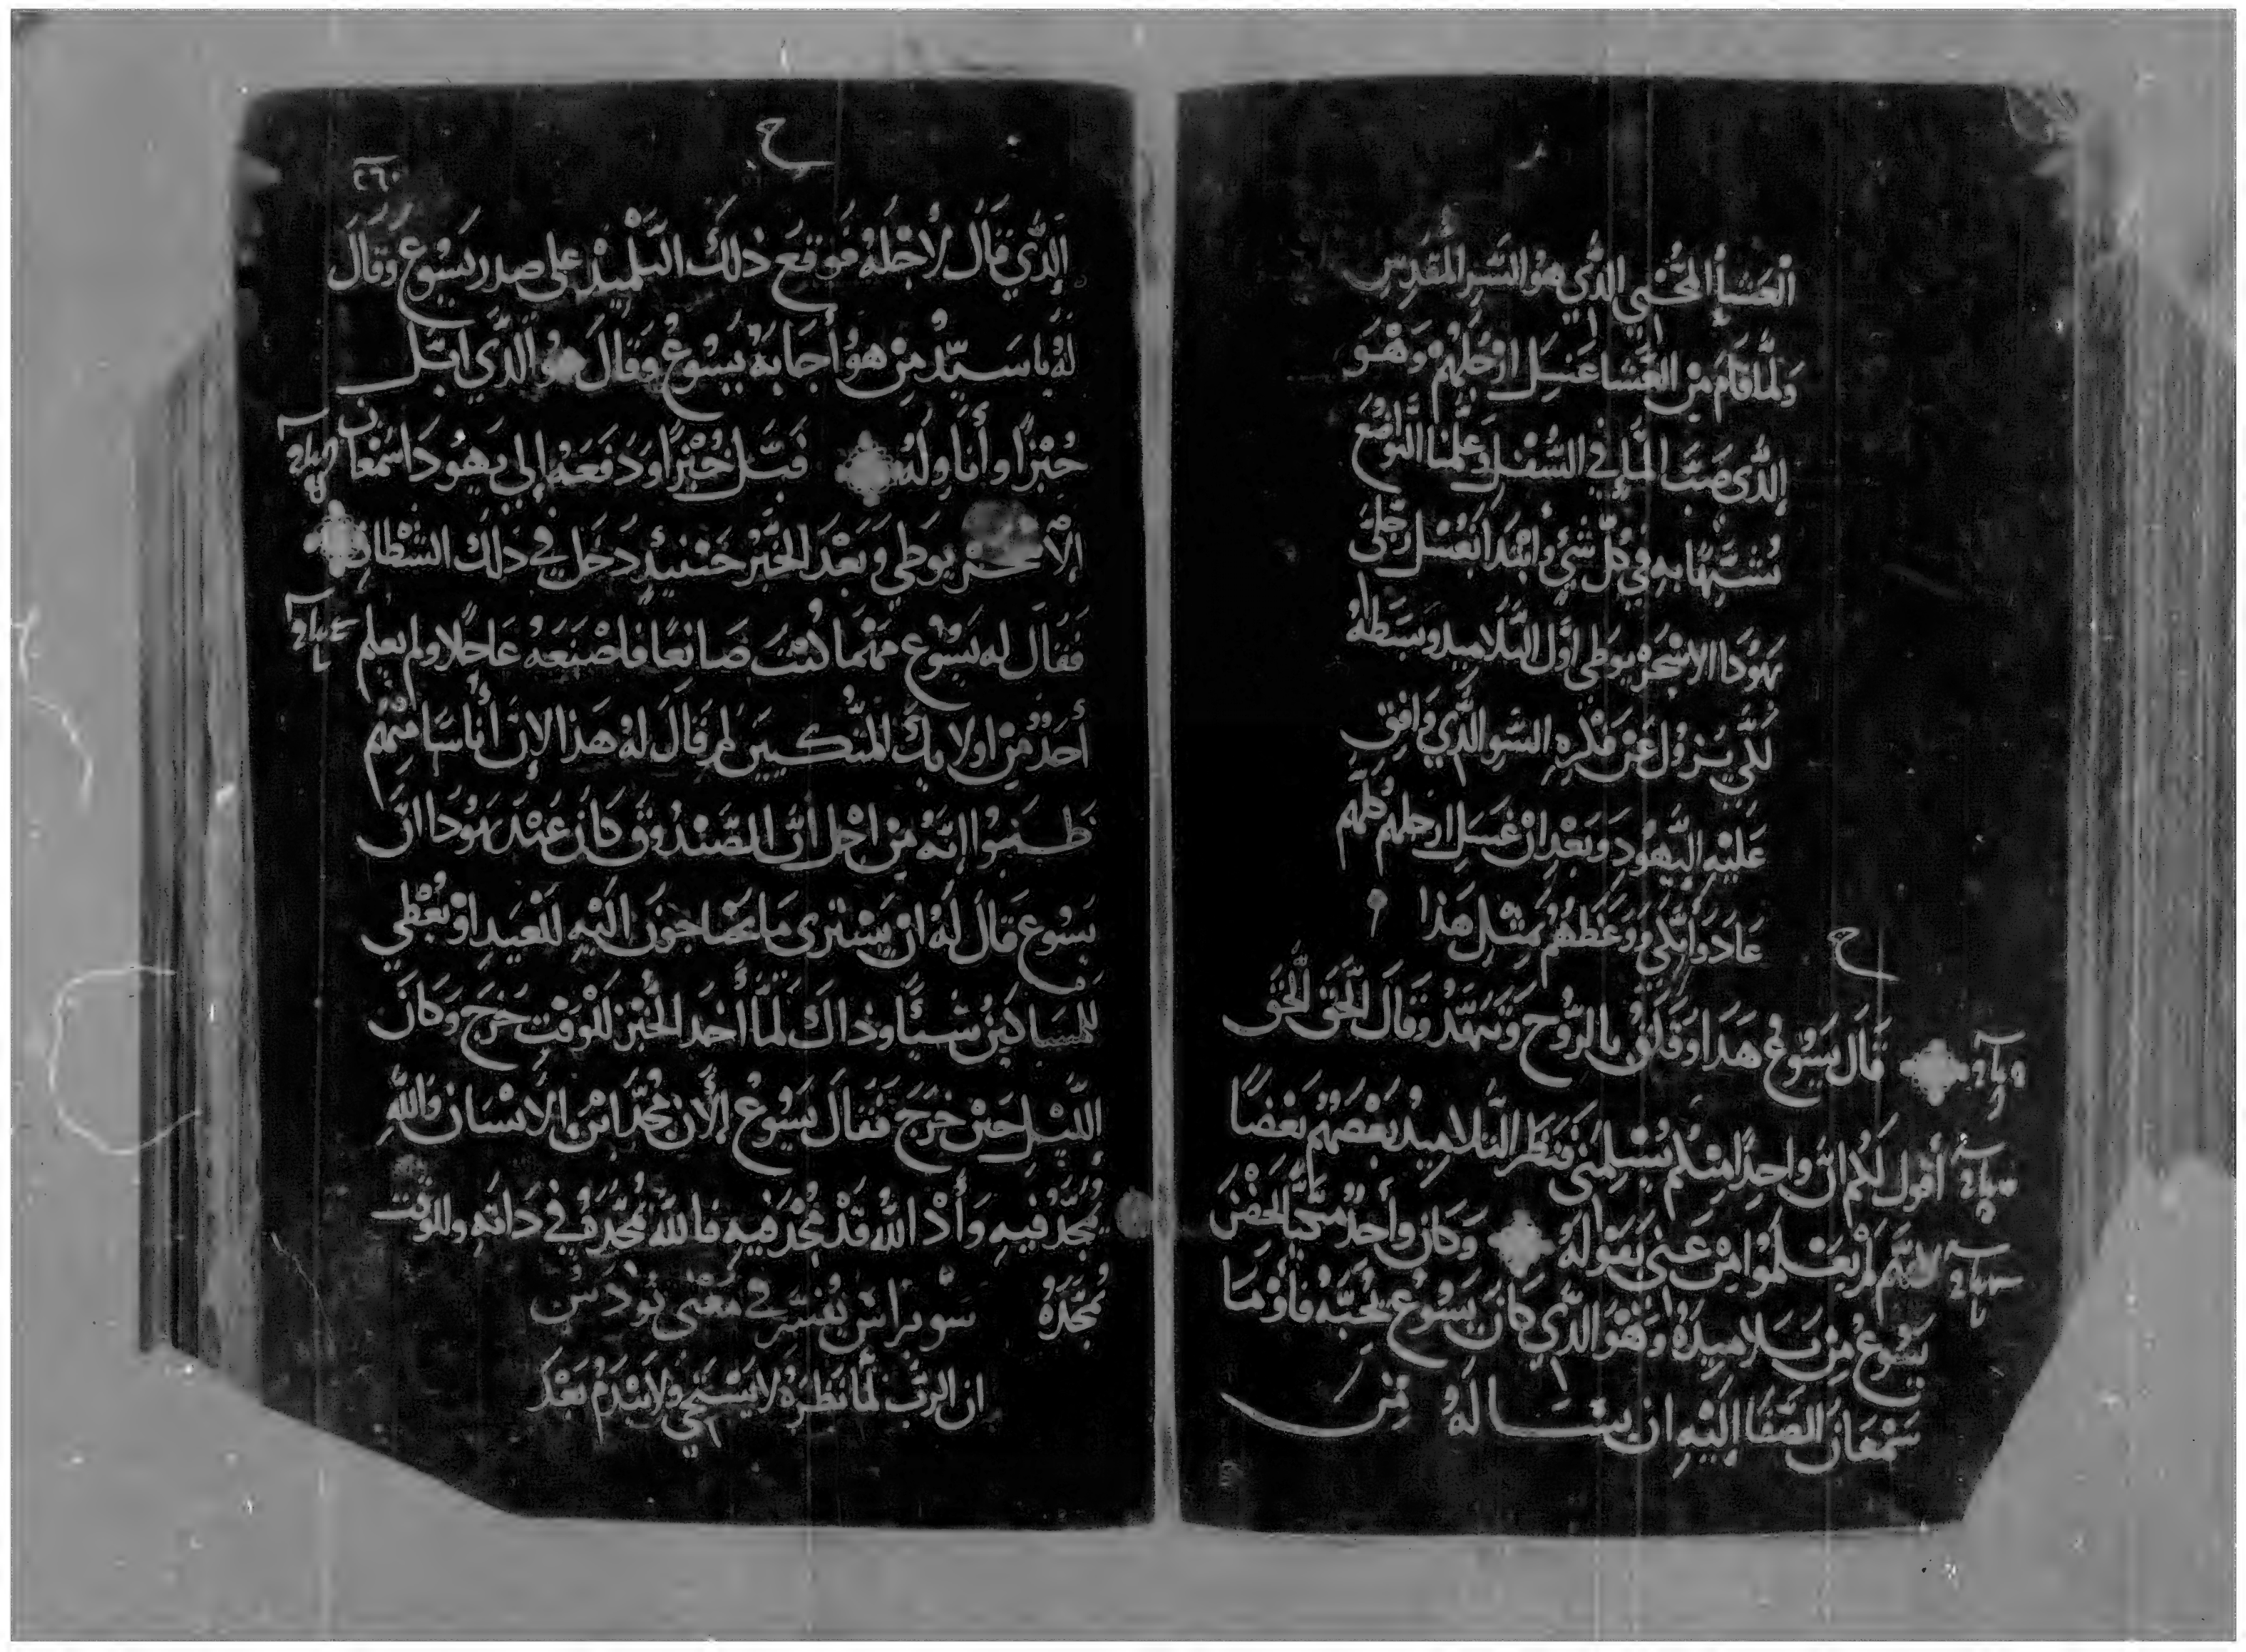 العشا المحيي الذي هو السر المقدس
ولما قام من العشا غسل ارجلهم وهو
الذي صب الما في السفل وعلمنا التواضع
نتشبها به في كل شي وابتدا بغسل رجلي
يهودا الاسخريوطي اول التلاميد وبسطه
لكي يزول عن فكره السو الذي وافق
عليه اليهود وبعد ان غسل ارجلهم كلهم
عاد واتكي ووعظهم بمثل هذا
ح
قال يسوع هدا وقلق بالروح وتنهد وقال الحق الحق
أقول لكم ان واحدا منكم يسلمني فنظر التلاميد بعضهم بعضا
لانهم لم يعلموا من عني بقوله وكان واحد متكيا في حضن
يسوع من تلاميده وهو الذي كان يسوع يحبه فأومأ
سمعان الصفا اليه ان يساله من
ح
٢٦٠
الذي قال لاجله فوقع ذلك التلميد على صدر يسوع وقال
له يا سيد من هو أجابه يسوع وقال هو الذي ابل
خبزا وأناوله فبل خبزا ودفعه إلى يهودا سمعان
الاسخريوطي وبعد الخبز حينيد دخل في دلك الشطان
فقال له يسوع مهما كنت صانعا فاصنعه عاجلا ولم يعلم
أحد من اولايك المتكيين لم قال له هدا الان أناسا منهم
ظنوا إنه من اجل ان الصندوق كان عند يهودا ان
يسوع قال له ان يشتري ما يحتاجون اليه للعيد او يعطي
للمساكين شيئا وذاك لما أخد الخبز للوقت خرج وكان
الليل حين خرج فقال يسوع الأن مجد ابن الانسان والله
مجد فيه وأذ الله قد مجد فيه فالله يمجده في داته وللوقت
يمجده سويراس يفسر في معنى يودس
ان الرب لما نظره لا يستحي ولا يندم بعد